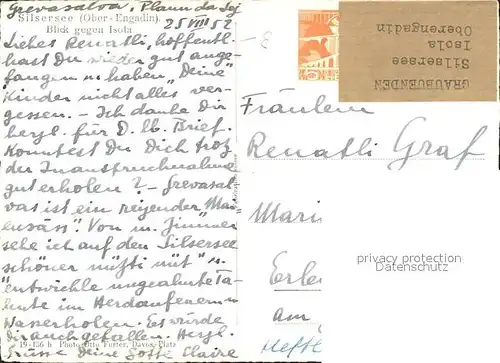 Grevasalva, Plaun da Lej
Silsersee (Ober-Engadin).
25 VIII 52
Blick gegen Isola
Liebes Renatli, hoffentli
hast Du wieder gut ange-
fangen u. haben „Deine"
Kinder nicht alles ver-
gessen. – Ich danke Dir
herzl. für D. lb. Brief.
Konntest Du Dich trotz
der Inanspruchnahme
gut erholen? – Grevasal
vas ist ein reizender „Mai
ensäss". Von m. Zimmer
sehe ich auf den Silsersee
schöner nützti nüt" u.
entwickle ungeahnte Ta-
lente im Herdanfeuern u.
Wasserholen. Es würde
Dir auch gefallen. Herzl.
Grüsse Deine Gotte Claire
19-136 h Photo Furter, Davos-Platz
GRAUBUENDEN
Silsersee
Isola
Oberengadin
Fräulein
Renatli Graf
Erle
am
privacy protection
Datenschutz